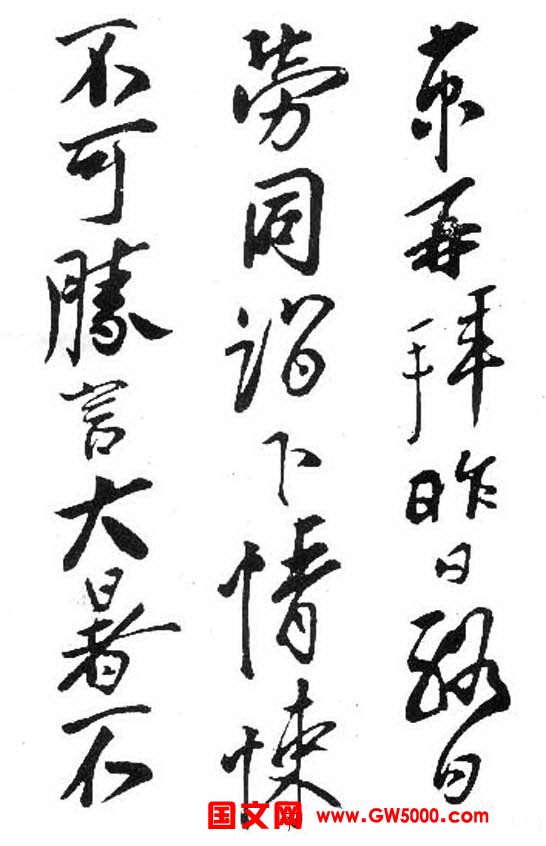 京再拜昨日終日
勞同詣下情悚
不可勝言大暑不
国文网 www.GW5000.com